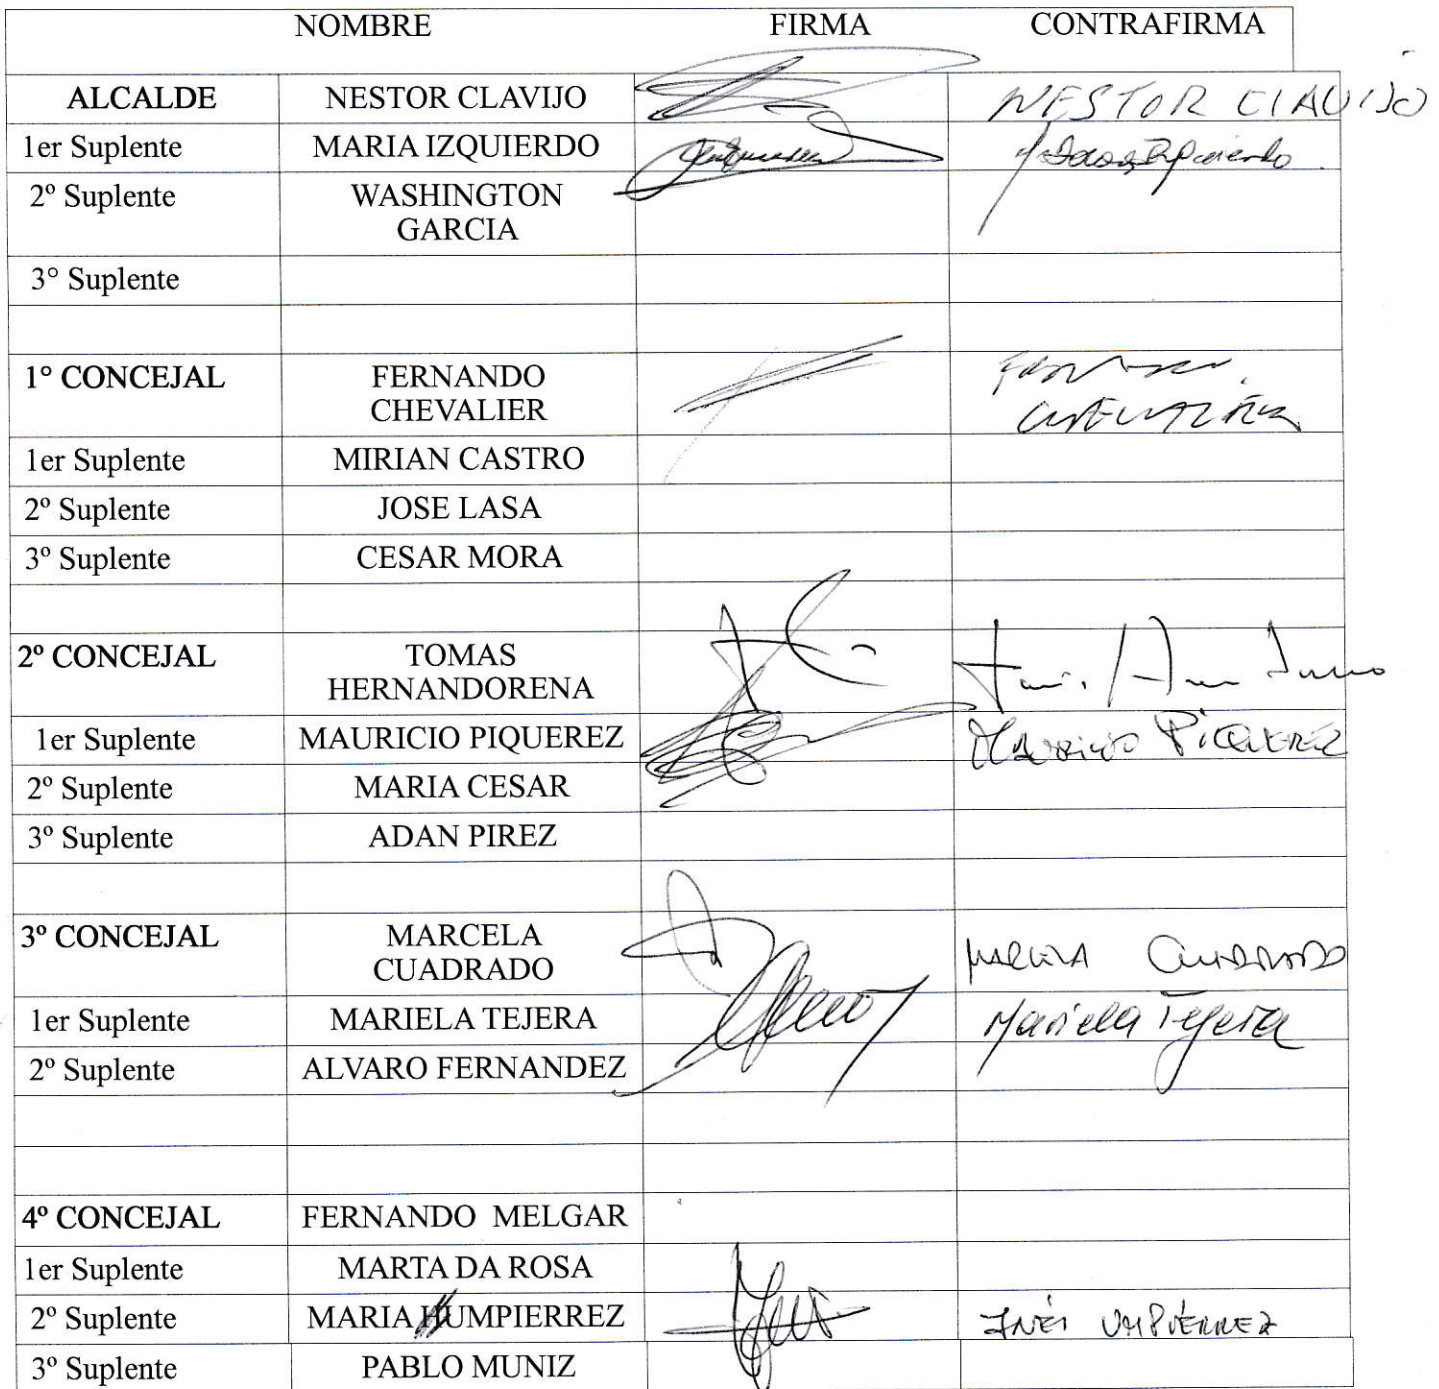 NOMBRE FIRMA CONTRAFIRMA
ALCALDE NESTOR CLAVIJO NESTOR ClAVIJO
1er Suplente MARIA IZQUIERDO
2º Suplente WASHINGTON
GARCIA
3° Suplente
1° CONCEJAL FERNANDO
CHEVALIER
1er Suplente MIRIAN CASTRO
2º Suplente JOSE LASA
3º Suplente CESAR MORA
2º CONCEJAL TOMAS
HERNANDORENA
1er Suplente MAURICIO PIQUEREZ Mauricio PiQUEREZ
2º Suplente MARIA CESAR
3º Suplente ADAN PIREZ
3º CONCEJAL MARCELA
CUADRADO MARCELA CUADRADO
1er Suplente MARIELA TEJERA Mariela Tejera
2º Suplente ALVARO FERNANDEZ
4º CONCEJAL FERNANDO MELGAR
1er Suplente MARTA DA ROSA
2º Suplente MARIA HUMPIERREZ INÉS UMPIÉRREZ
3º Suplente PABLO MUNIZ